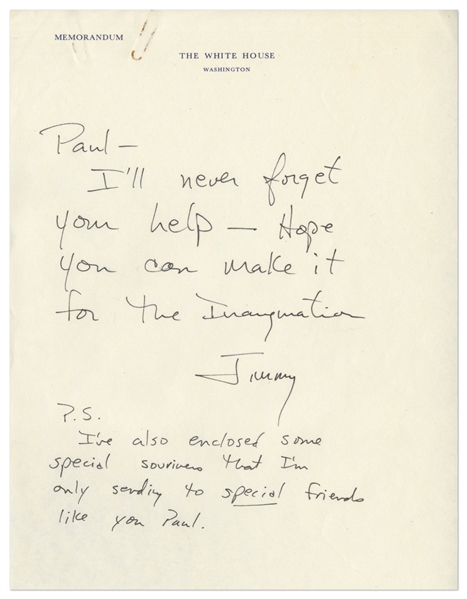 MEMORANDUM
THE WHITE HOUSE
WASHINGTON
Paul —
I'll never forget
your help — Hope
you can make it
for the Inauguration
Jimmy
P.S.
I've also enclosed some
special souvineers that I'm
only sending to special friends
like you Paul.